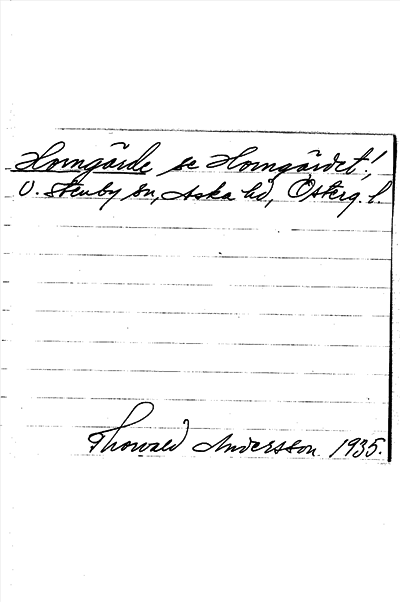 Horngärde se Horngärdet!,
V. Stenby sn, Aska hd, Österg. l.
Thorvald Andersson 1935.